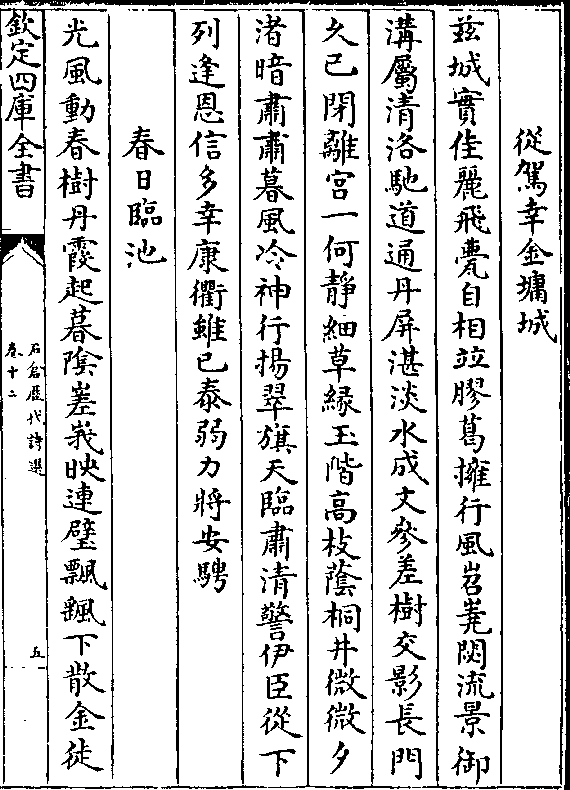 從駕幸金墉城
兹城實佳麗飛甍自相竝膠葛擁行風岧嶤閟流景御
溝屬清洛馳道通丹屏湛淡水成文參差樹交影長門
久已閉離宮一何靜細草緣玉階高枝蔭桐井微微夕
渚暗肅肅暮風冷神行揚翠旗天臨肅清警伊臣從下
列逢恩信多幸康衢雖已泰弱力將安騁
春日臨池
光風動春樹丹霞起暮隂嵳峩映連璧飄颻下散金徒
欽定四庫全書
石倉歷代詩選
卷十二
五